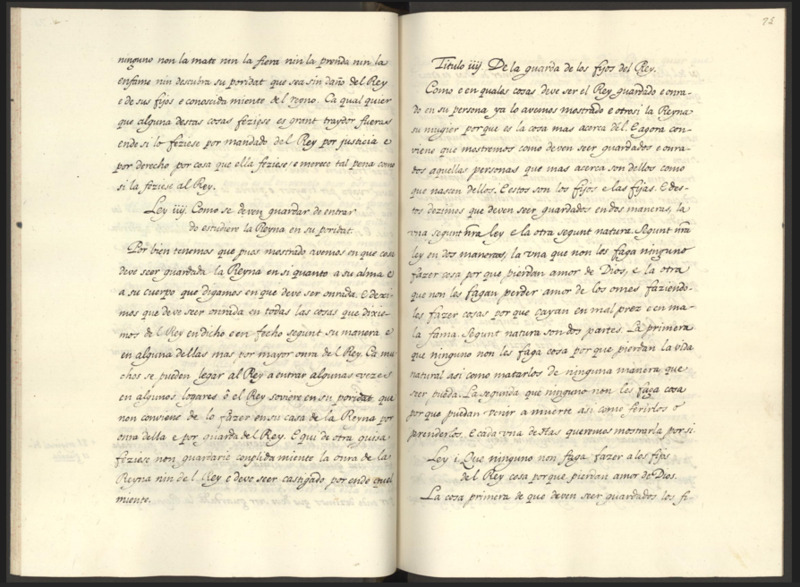 ninguno non la mate nin la fiera nin la prenda nin la
enfame nin descubra su poridat que sea sin daño del Rey
e de sus fijos e conoscida miente del regno. Ca qual quier
que alguna destas cosas feziese es grant traydor fueras
ende si lo feziese por mandado del Rey por justicia e
por derecho por cosa que ella feziese e merece tal pena como
si la feziese al Rey.
Ley iiij Como se deven guardar de entrar
do estudiere la Reyna en su poridat.
Por bien tenemos que pues mostrado avemos en que cosa
deve seer guardada la Reyna en si quanto a su alma e
a su cuerpo que digamos en que deve ser onrada. E dezi
mos que deve seer onrada en todas las cosas que dixie
mos del Rey en dicho e en fecho segunt su manera e
en alguna dellas mas por mayor onra del Rey. Ca mu
chos se pueden legar al Rey a entrar algunas vezes
en algunos logares ó el Rey soviere en su poridat que
non conviene de lo fazer en su casa de la Reyna por
onra della e por guarda del Rey. E qui de otra guisa
feziese non guardarie conplida miente la onra de la
Reyna nin del Rey e deve seer castigado por ende cruel
miente.
75
Titulo iiij De la guarda de los fijos del Rey.
Como e en quales cosas deve ser el Rey guardado e onra-
do en su persona ya lo avemos mostrado e otrosi la Reyna
su mugier porque es la cosa mas acerca dél. E agora con-
viene que mostremos como deven seer guardados e onra-
dos aquellas personas que mas acerca son dellos como
que nascen dellos. E estos son los fijos e las fijas. E des-
tos dezimos que deven seer guardados en dos maneras, la
vna segunt nrã ley e la otra segunt natura. Segunt nrã
ley en dos maneras, la vna que non les faga ninguno
fazer cosa por que pierdan amor de Dios, e la otra
que non les fagan perder amor de los omes faziendo-
les fazer cosas por que cayan en mal prez e en ma-
la fama. Segunt natura son dos partes. La primera
que ninguno non les faga cosa por que pierdan la vida
natural asi como matarlos de ninguna manera que
ser pueda. La segunda que ninguno non les faga cosa
por que puedan venir a muerte asi como ferirlos o
prenderlos. E cada vna destas queremos mostrarla por si.
Ley i. Que ninguno non faga fazer a los fijos
del Rey cosa porque pierdan amor de Dios.
La cosa primera de que deven seer guardados los fi-